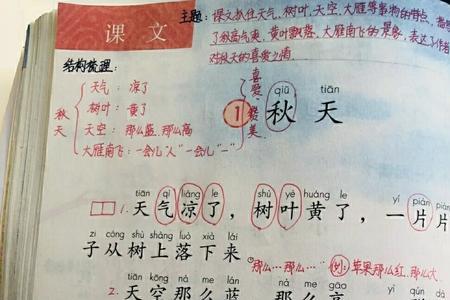 主题：课文抓住天气、树叶、天空、大雁等事物的特点，描绘
了秋高气爽、黄叶飘落、大雁南飞的景象，表达了作者
对秋天的喜爱之情
课文
结构梳理：
天气：凉了
树叶：黄了
天空：那么蓝、那么高
大雁南飞：一会儿"人"一会儿"一"
秋天
喜爱、赞美
qiū tiān
1 秋天
tiān qì liáng le shù yè huáng le yí piàn piàn
1. 天气凉了，树叶黄了，一片片
zi cóng shù shàng luò xià lái
子从树上落下来
"那么…那么…" 例：苹果那么红、那么大
tiān kōng nà me lán nà me gāo
2. 天空那么蓝，那么高